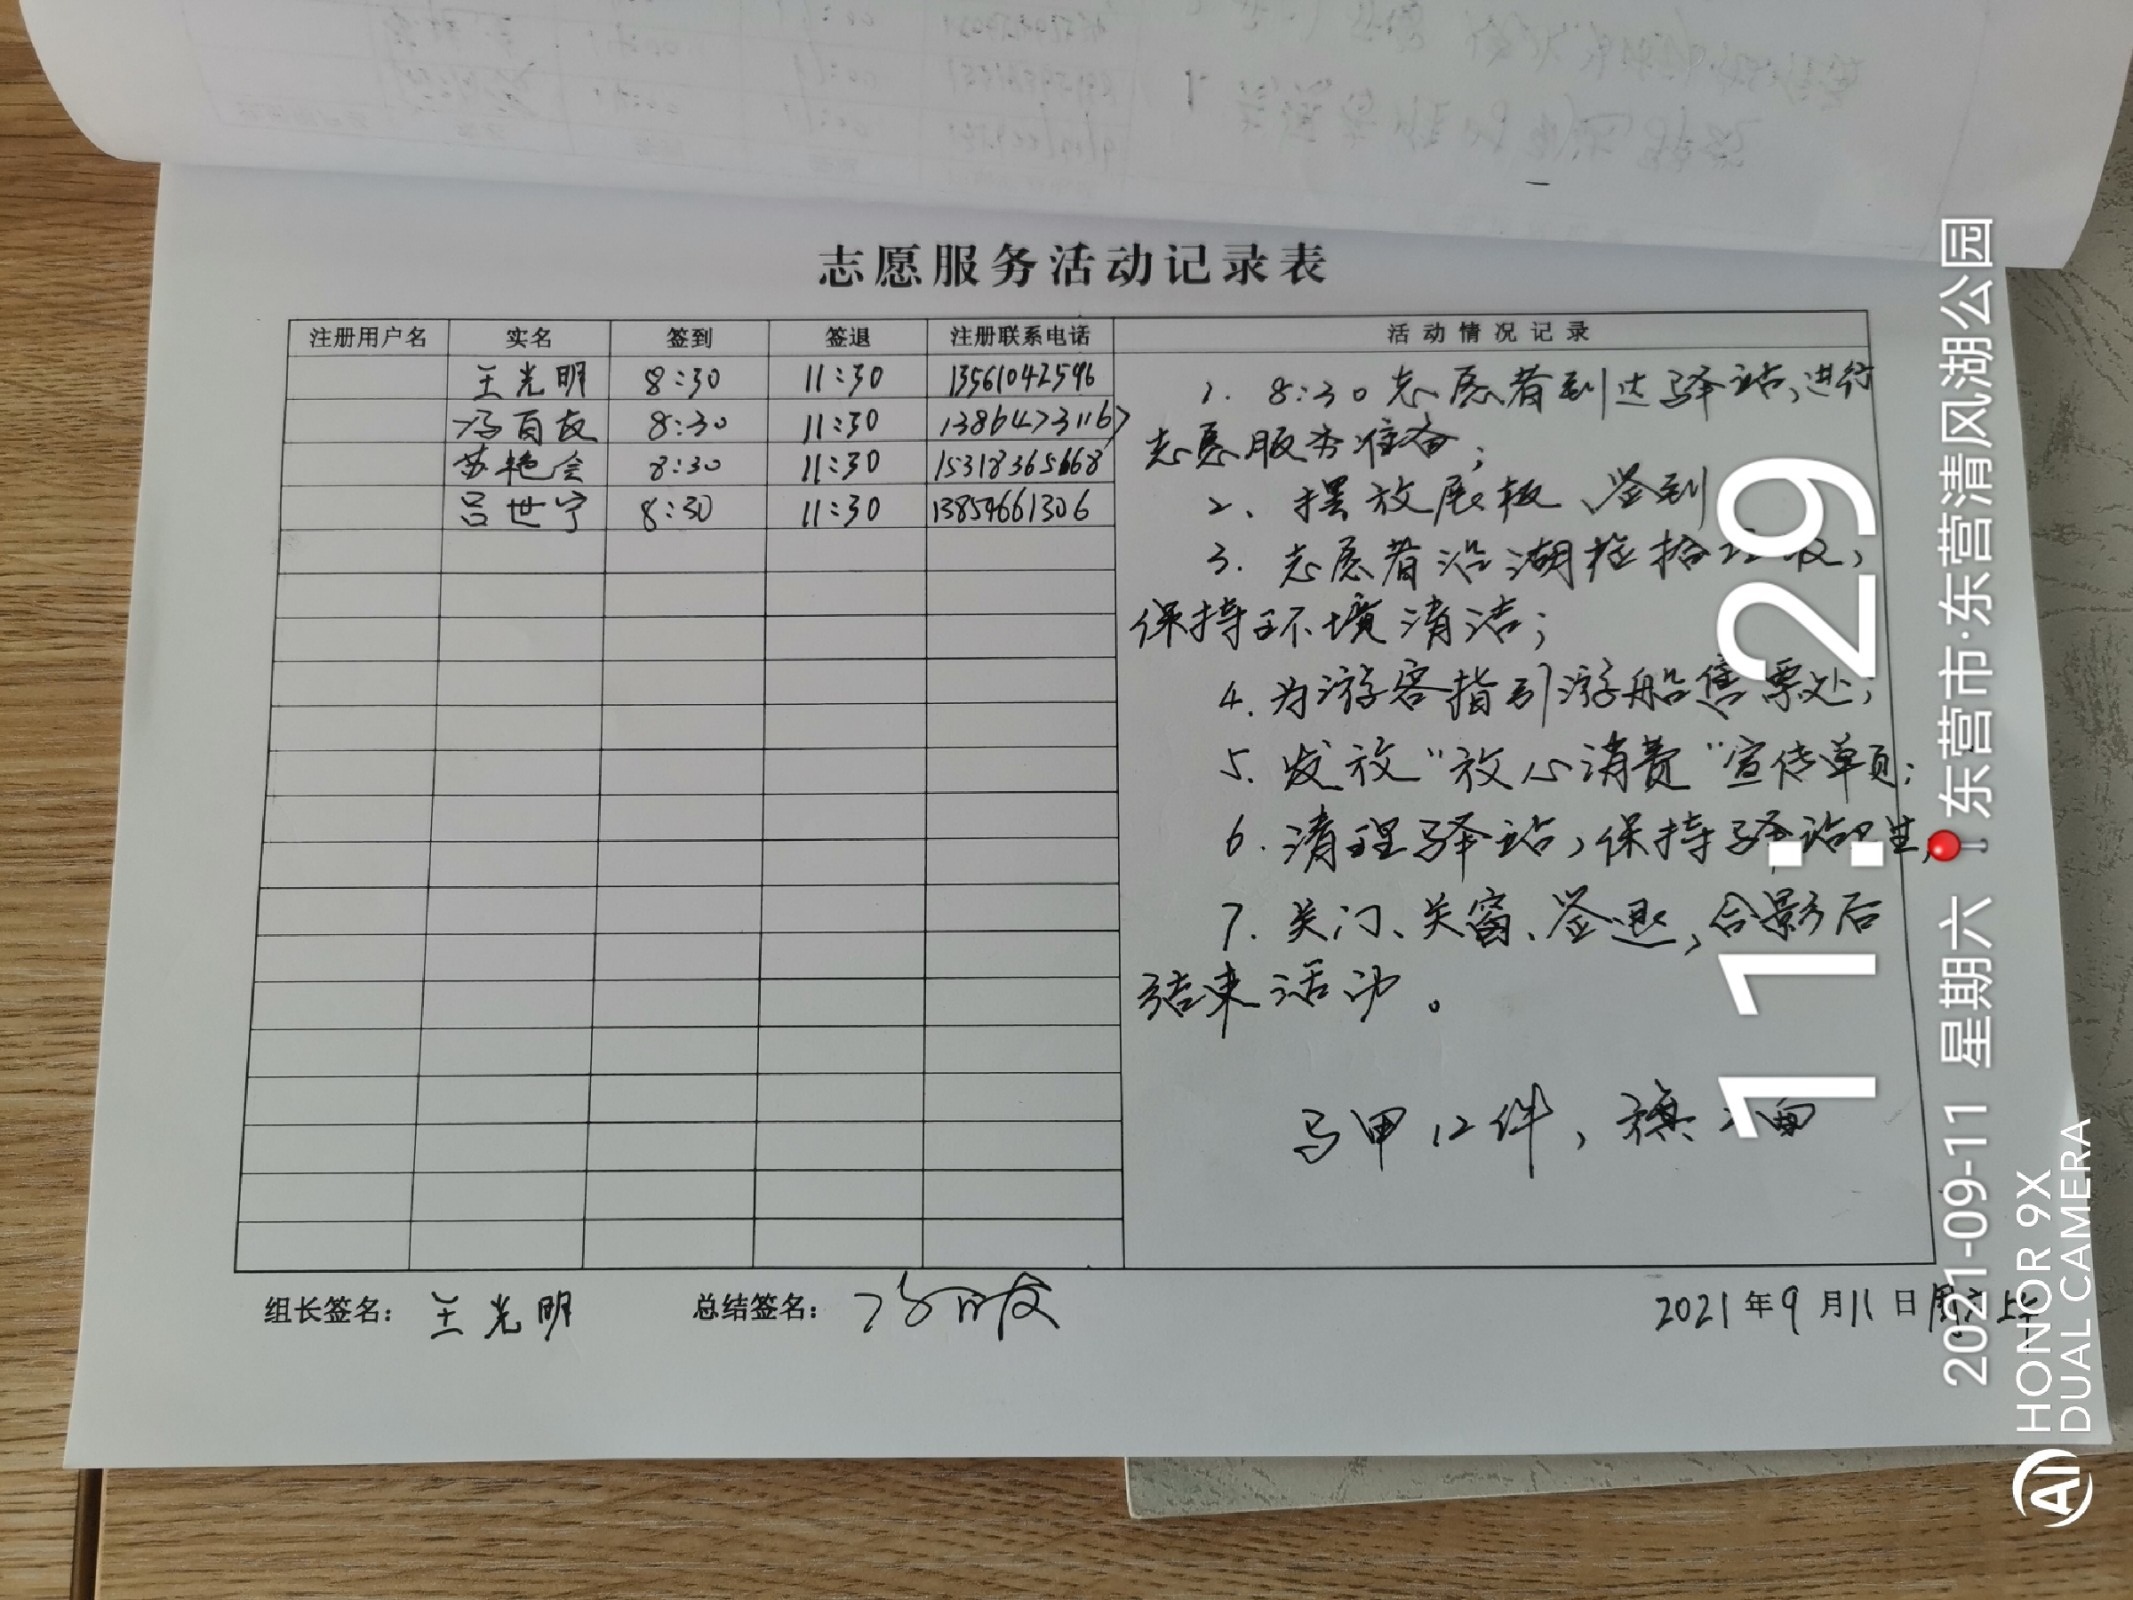 志愿服务活动记录表
注册用户名 实名 签到 签退 注册联系电话 活动情况记录
王光明 8:30 11:30 13561042596
冯百友 8:30 11:30 13864731167
苏艳会 8:30 11:30 15318365668
吕世宁 8:30 11:30 13854661306
1. 8:30志愿者到达驿站,进行
志愿服务准备;
2. 摆放展板、签到
3. 志愿者沿湖捡拾垃圾,
保持环境清洁;
4. 为游客指引游船售票处;
5. 发放"放心消费"宣传单页;
6. 清理驿站,保持驿站卫生,
7. 关门、关窗、签退,合影后
结束活动。
马甲12件,旗2面
组长签名: 王光明 总结签名: 冯百友 2021年9月11日周六上午
11:29
2021-09-11 星期六 东营市·东营清风湖公园
HONOR 9X
DUAL CAMERA
AI